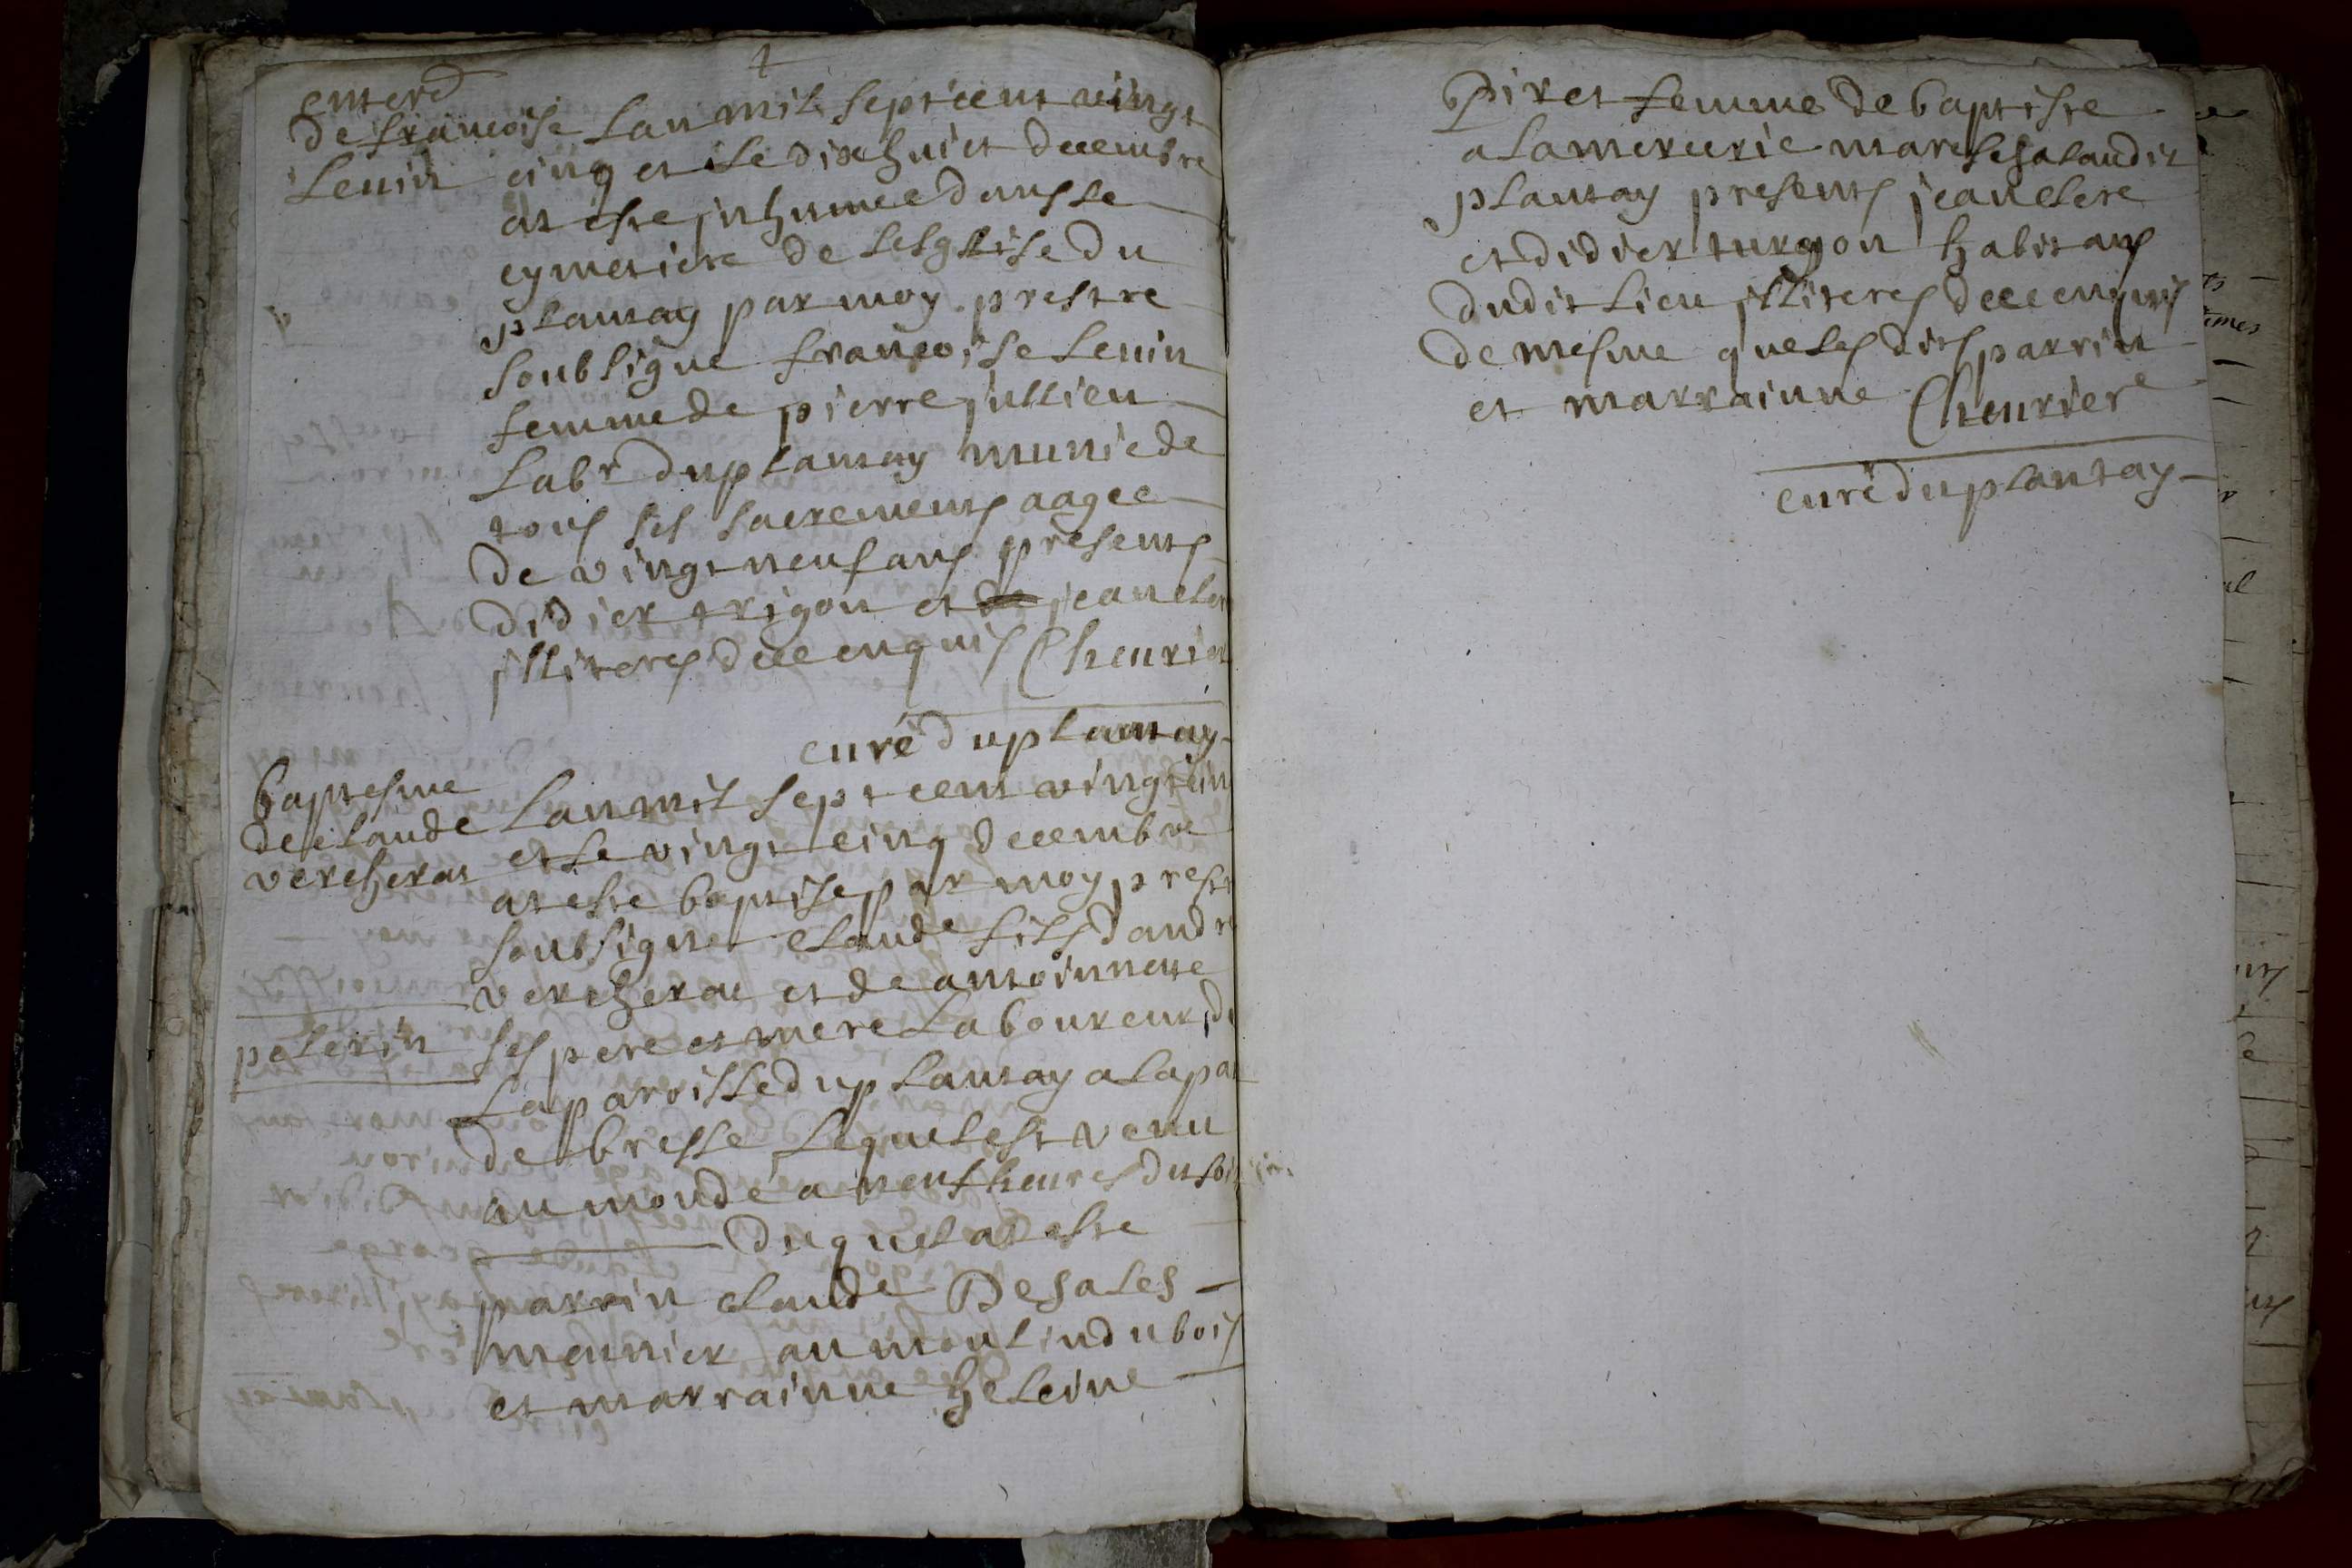 enterd
de françoise
Lenin
Lan mil sept cent vingt
cinq et le dix huict decembre
at esté inhumée dans le
cymetiere de lesglise du
plantay par moy prestre
soubsigné françoise Lenin
femme de pierre jullien
Labr du plantay munie de
tous ses sacrements aagée
de vingt neuf ans presents
didier trigon et jean clere
illiteres de ce enquis Cheurier
curé du plantay
baptesme
de claude
vercherat
pelerin
Lan mil sept cent vingt cin
et le vingt cinq decembre
at esté baptisé par moy prest
soubsigné claude fils dandré
vercherat et de antoinnette
ses pere et mere Laboureur de
La paroisse du plantay a la par
de bresse Lequel est venu
au monde a neuf heures du soir
duquel at esté
parrin claude Desales
meunier au moulin du bois
et marrainne heleine
Piret femme de baptiste
alamercerie mareschal audit
plantay presents jean clere
et didier turgon habitans
dudit Lieu illiteres de ce enquis
de mesme que les dits parrin
et marrainne Cheurier
curé du plantay